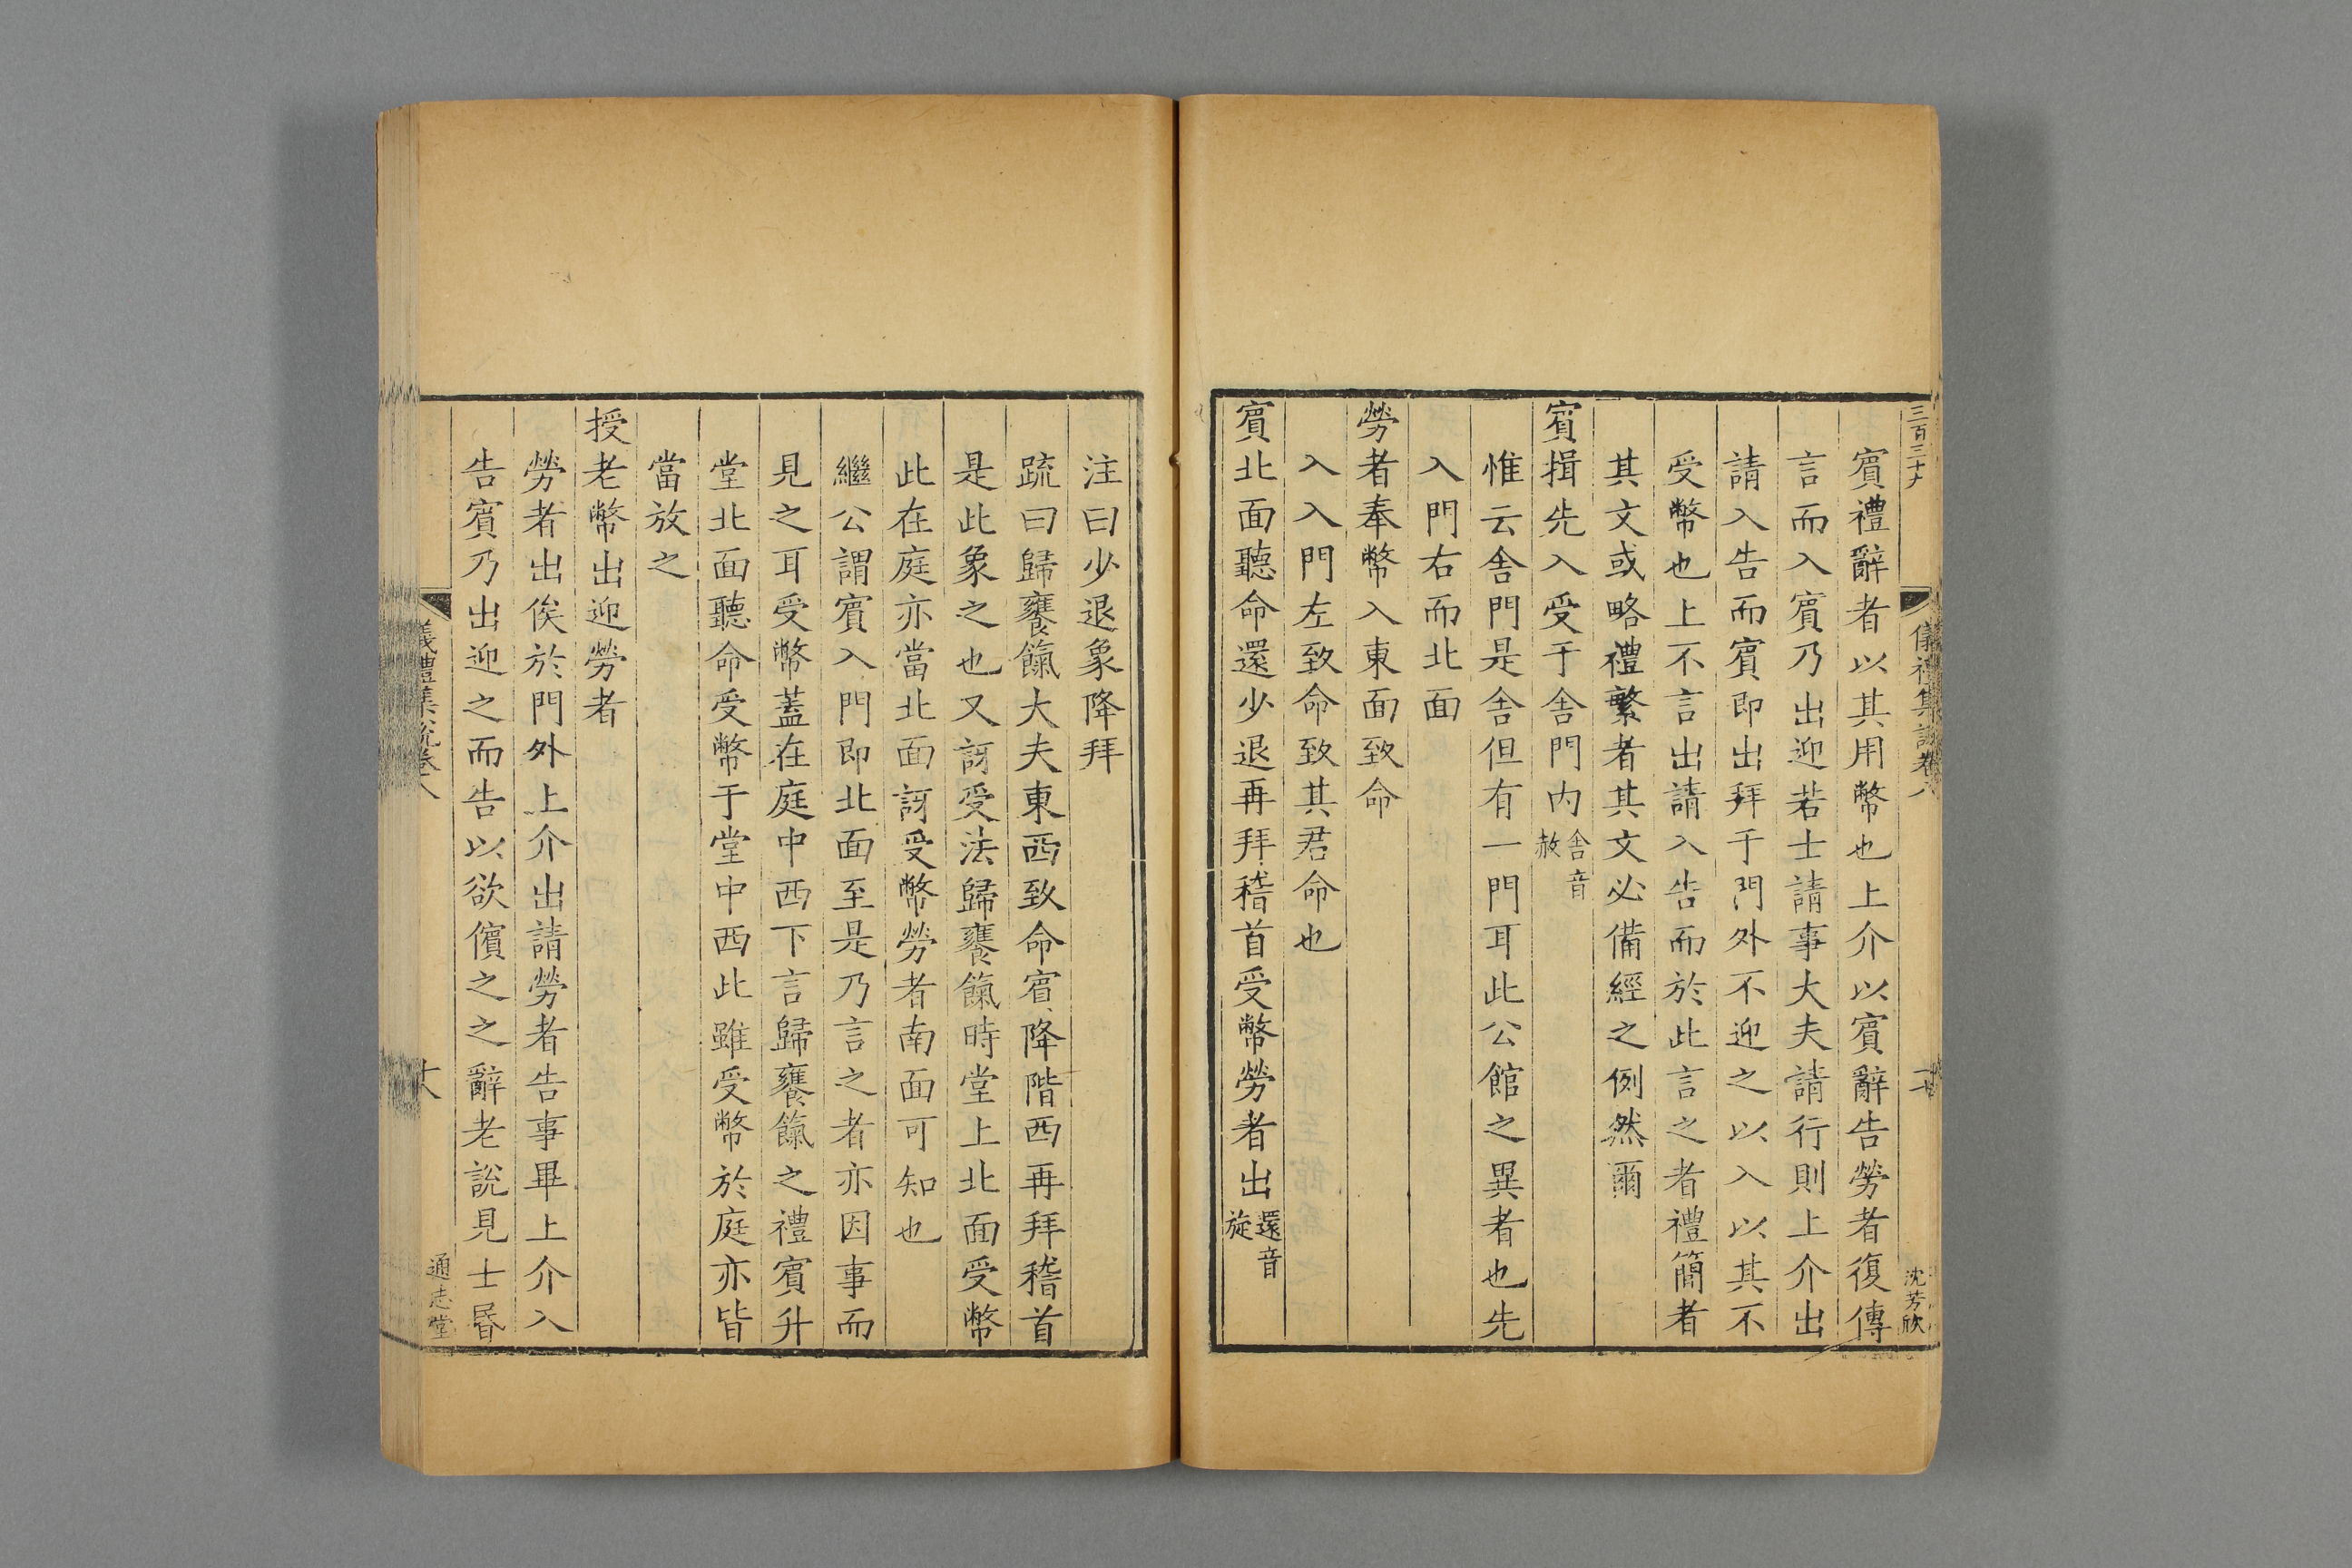 三百三十九
儀禮集說卷八
沈芳欣
賔禮辭者以其用幣也上介以賔辭告勞者復傳
言而入賔乃出迎若士請事大夫請行則上介出
請入告而賔即出拜于門外不迎之以入以其不
受幣也上不言出請入告而於此言之者禮簡者
其文或略禮繁者其文必備經之例然爾
賔揖先入受于舍門内舍音赦
惟云舍門是舍但有一門耳此公館之異者也先
入門右而北面
勞者奉幣入東面致命
入入門左致命致其君命也
賔北面聽命還少退再拜稽首受幣勞者出還音旋
注曰少退象降拜
疏曰歸饔餼大夫東西致命賔降階西再拜稽首
是此象之也又訝受法歸饔餼時堂上北面受幣
此在庭亦當北面訝受幣勞者南面可知也
繼公謂賔入門即北面至是乃言之者亦因事而
見之耳受幣葢在庭中西下言歸饔餼之禮賔升
堂北面聽命受幣于堂中西此雖受幣於庭亦皆
當放之
授老幣出迎勞者
勞者出俟於門外上介出請勞者告事畢上介入
告賔乃出迎之而告以欲儐之之辭老說見士昬
儀禮集說卷八
通志堂